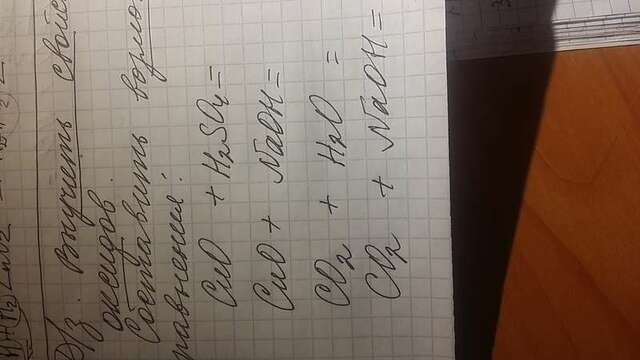 Д/з. Выучить свойс
оксидов.
Составить возмо
равнения:
CuO + H₂SO₄ =
CuO + NaOH =
CO₂ + H₂O =
CO₂ + NaOH =